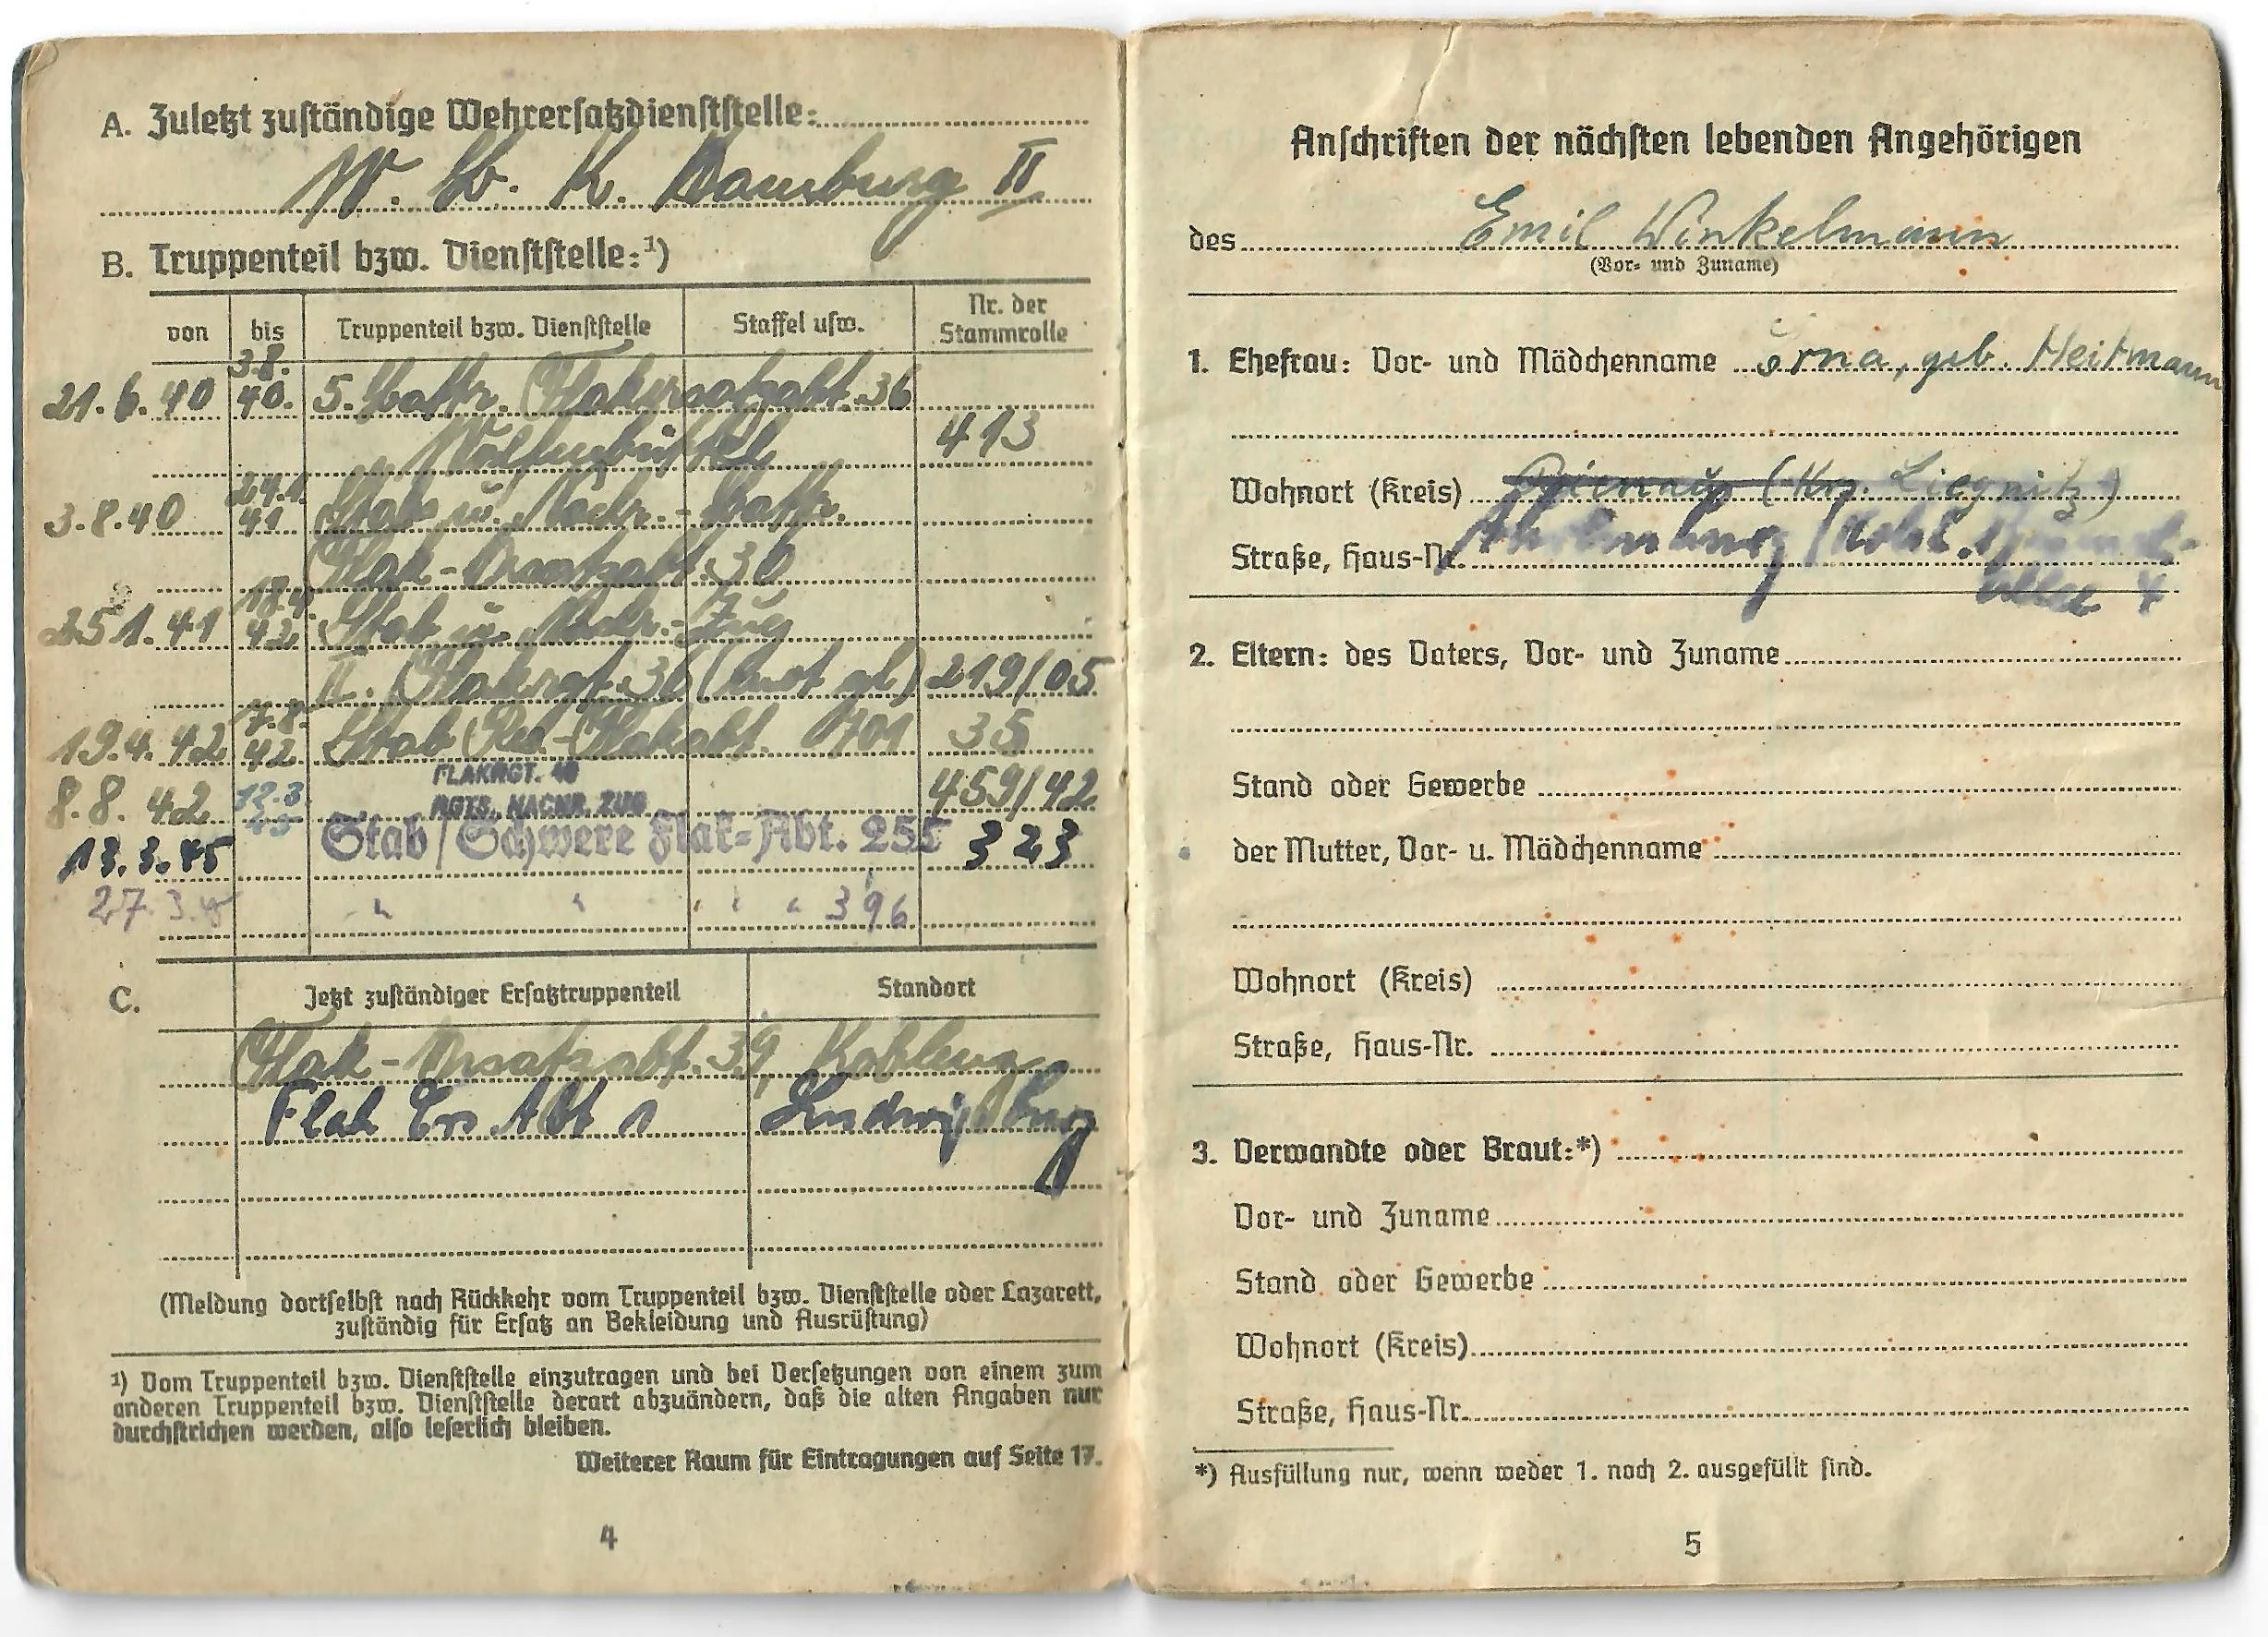 A. Zuletzt zuständige Wehrersatzdienststelle:
W. B. K. Hamburg II
B. Truppenteil bzw. Dienststelle:¹)
von bis Truppenteil bzw. Dienststelle Staffel usw. Nr. der Stammrolle
21.6.40 3.8.40. 5. Battr. Flakersatzabt. 36
Wolfenbüttel 413
3.8.40 24.1.41 Stabs u. Nachr.-Battr.
Flak-Ersatzabt. 36
25.1.41 18.4.42 Stab u. Nachr.-Zug
II. Flakrgt. 36 (mot gl) 219/05
19.4.42 7.8.42 Stab Res.-Flakabt. 701 35
FLAKRGT. 49
8.8.42 12.3.45 RGTS. NACHR. ZUG 459/42
13.3.45 Stab/Schwere Flak-Abt. 255 323
27.3.45 " " " " " 396
C. Jetzt zuständiger Ersatztruppenteil Standort
Flak-Ersatzabt. 39, Koblenz
Flak Ers Abt 1 Ludwigsburg
(Meldung dortselbst nach Rückkehr vom Truppenteil bzw. Dienststelle oder Lazarett,
zuständig für Ersatz an Bekleidung und Ausrüstung)
¹) Vom Truppenteil bzw. Dienststelle einzutragen und bei Versetzungen von einem zum
anderen Truppenteil bzw. Dienststelle derart abzuändern, daß die alten Angaben nur
durchstrichen werden, also leserlich bleiben.
Weiterer Raum für Eintragungen auf Seite 17.
4
Anschriften der nächsten lebenden Angehörigen
des Emil Winkelmann
(Vor- und Zuname)
1. Ehefrau: Vor- und Mädchenname Erna, geb. Heitmann
Wohnort (Kreis) (Krs. Liegnitz)
Straße, Haus-Nr. Ahrensburg / Holst.
Allee 4
2. Eltern: des Vaters, Vor- und Zuname
Stand oder Gewerbe
der Mutter, Vor- u. Mädchenname
Wohnort (Kreis)
Straße, Haus-Nr.
3. Verwandte oder Braut:*)
Vor- und Zuname
Stand oder Gewerbe
Wohnort (Kreis)
Straße, Haus-Nr.
*) Ausfüllung nur, wenn weder 1. noch 2. ausgefüllt sind.
5